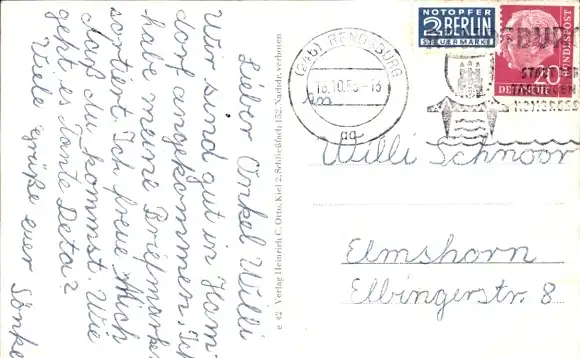 Lieber Onkel Willi
Wir sind gut in Ham-
dorf angekommen. Ich
habe meine Briefmarken
sortiert. Ich freue Mich
daß du kommst. Wie
geht es Tante Deta?
Viele Grüße euer Sönke
e 42 Verlag Heinrich C. Otto, Kiel 2, Schließfach 152. Nachdr. verboten
(24b) RENDSBURG
NOTOPFER
2 BERLIN
STEUERMARKE
20
DEUTSCHE BUNDESPOST
KONGRESS
Willi Schnoor
Elmshorn
Elbingerstr. 8